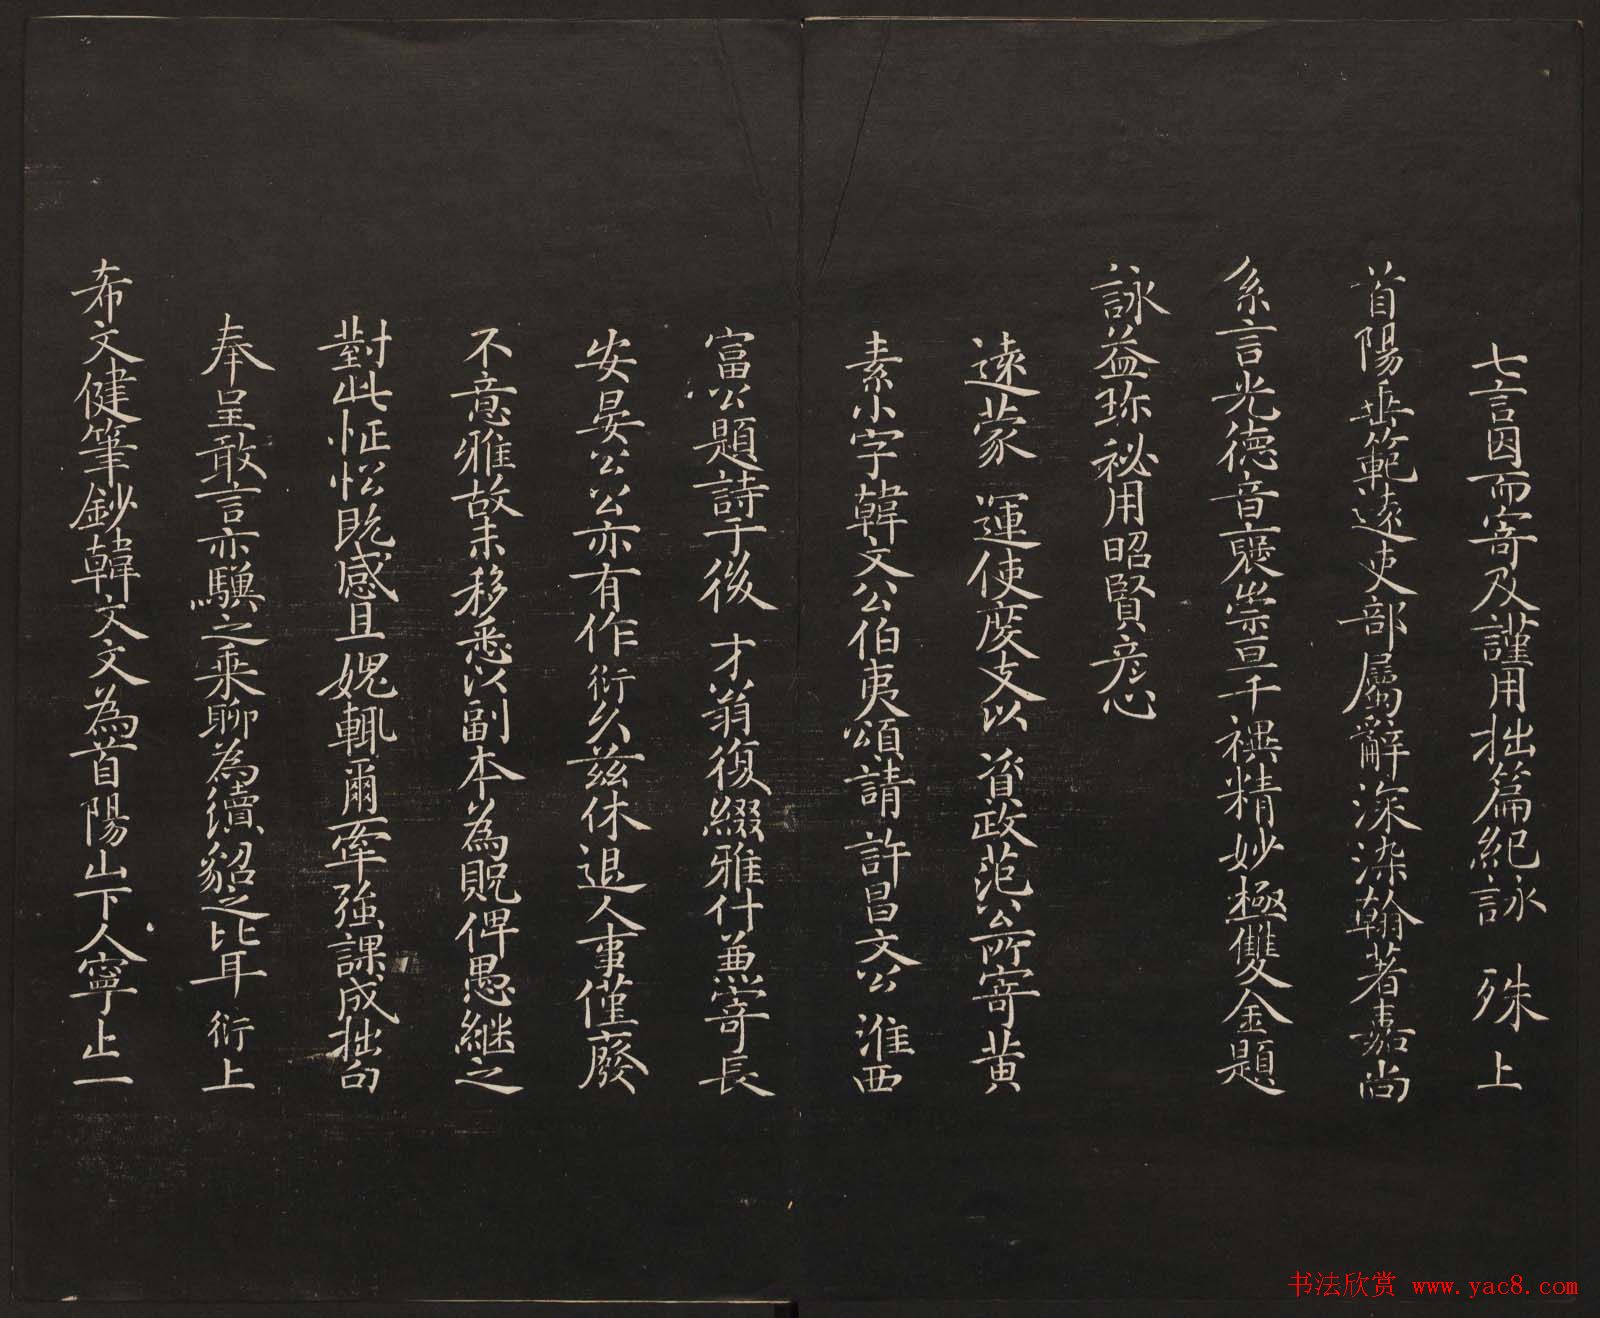 七言因而寄及謹用拙篇紀詠 殊上
首陽垂範遠吏部屬辭深染翰著嘉尚
系言光德音襃崇亘千禩精妙極雙金題
詠益珎秘用昭賢彥心
遠蒙 運使度支以 資政范公所寄黃
素小字韓文公伯夷頌請 許昌文公 淮西
富公題詩于後 才翁復綴雅什兼寄長
安晏公公亦有作衍久茲休退人事僅廢
不意雅故未移悉以副本為貺俾愚繼之
對此怔忪既感且媿輒爾牽強課成拙句
奉呈敢言亦驥之乘聊為續貂之比耳 衍上
希文健筆鈔韓文文為首陽山下人寧止一
书法欣赏 www.yac8.com